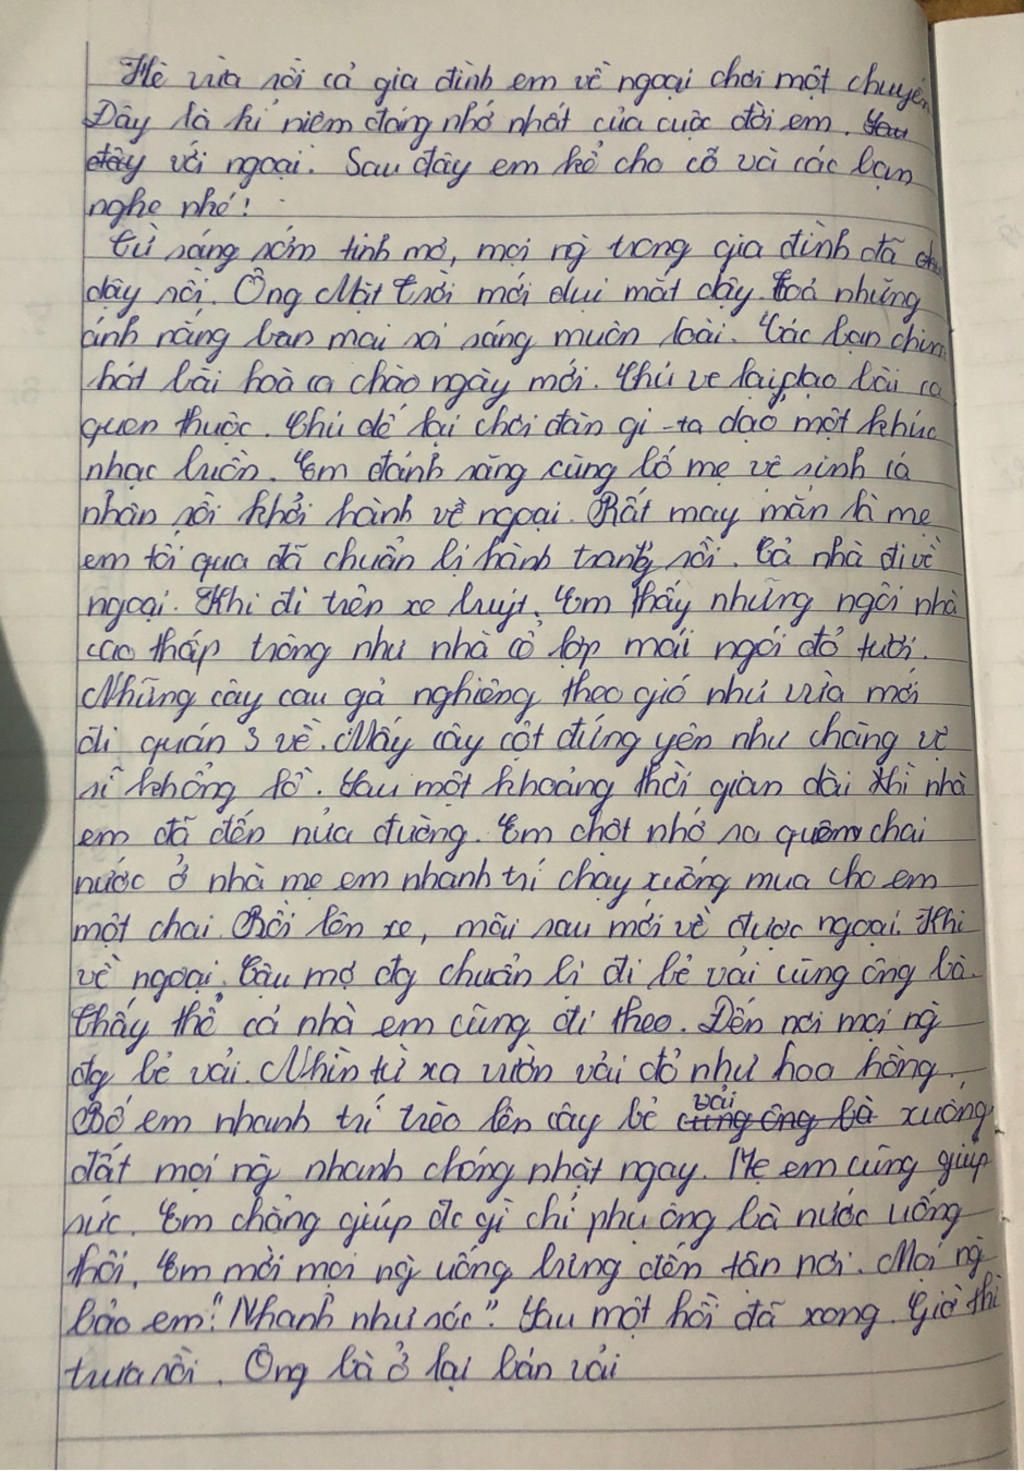 Hè vừa rồi cả gia đình em về ngoại chơi một chuyến
Đây là kỉ niệm đáng nhớ nhất của cuộc đời em. Sau
đây với ngoại. Sau đây em kể cho cô và các bạn
nghe nhé!
Từ sáng sớm tinh mơ, mọi ng` trong gia đình đã
dậy rồi. Ông Mặt Trời mới dụi mắt dậy. Toả những
ánh nắng ban mai soi sáng muôn loài. Các bạn chim
hát bài hoà ca chào ngày mới. Chú ve lại dạo bài ca
quen thuộc. Chú dế lại chơi đàn ghi-ta dạo một khúc
nhạc buồn. Em đánh răng cùng bố mẹ vệ sinh cá
nhân rồi khởi hành về ngoại. Rất may mắn là mẹ
em tối qua đã chuẩn bị hành trang rồi. Cả nhà đi về
ngoại. Khi đi trên xe buýt. Em thấy những ngôi nhà
cao thấp trông như nhà cổ lợp mái ngói đỏ tươi.
Những cây cau gả nghiêng theo gió như vừa mới
đi quán 3 về. Mấy cây cột đứng yên như chàng vệ
sĩ khổng lồ. Sau một khoảng thời gian dài thì nhà
em đã đến nửa đường. Em chợt nhớ ra quên chai
nước ở nhà mẹ em nhanh trí chạy xuống mua cho em
một chai. Rồi lên xe, mãi sau mới về được ngoại. Khi
về ngoại, Cậu mợ đg chuẩn bị đi bẻ vải cùng ông bà.
Thấy thế cả nhà em cũng đi theo. Đến nơi mọi ng`
đg bẻ vải. Nhìn từ xa vườn vải đỏ như hoa hồng.
Bố em nhanh trí trèo lên cây bẻ vải cùng ông bà xuống
đất mọi ng` nhanh chóng nhặt ngay. Mẹ em cũng giúp
sức. Em chẳng giúp đc gì chỉ phụ ông bà nước uống
thôi. Em mời mọi ng` uống bưng đến tận nơi. Mọi ng`
bảo em: "Nhanh như sóc". Sau một hồi đã xong. Giờ thì
trưa rồi. Ông bà ở lại bán vải